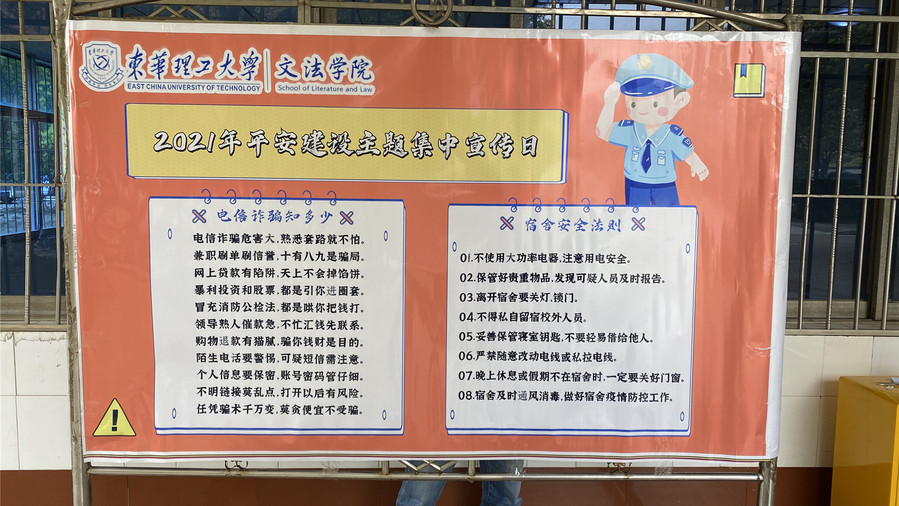 東華理工大學 文法学院
EAST CHINA UNIVERSITY OF TECHNOLOGY School of Literature and Law
2021年平安建设主题集中宣传日
电信诈骗知多少
电信诈骗危害大,熟悉套路就不怕。
兼职刷单刷信誉,十有八九是骗局。
网上贷款有陷阱,天上不会掉馅饼。
暴利投资和股票,都是引你进圈套。
冒充消防公检法,都是哄你把钱打。
领导熟人催款急,不忙汇钱先联系。
购物退款有猫腻,骗你钱财是目的。
陌生电话要警惕,可疑短信需注意。
个人信息要保密,账号密码管仔细。
不明链接莫乱点,打开以后有风险。
任凭骗术千万变,莫贪便宜不受骗。
宿舍安全法则
01.不使用大功率电器,注意用电安全。
02.保管好贵重物品,发现可疑人员及时报告。
03.离开宿舍要关灯,锁门。
04.不得私自留宿校外人员。
05.妥善保管寝室钥匙,不要轻易借给他人。
06.严禁随意改动电线或私拉电线。
07.晚上休息或假期不在宿舍时,一定要关好门窗。
08.宿舍及时通风消毒,做好宿舍疫情防控工作。